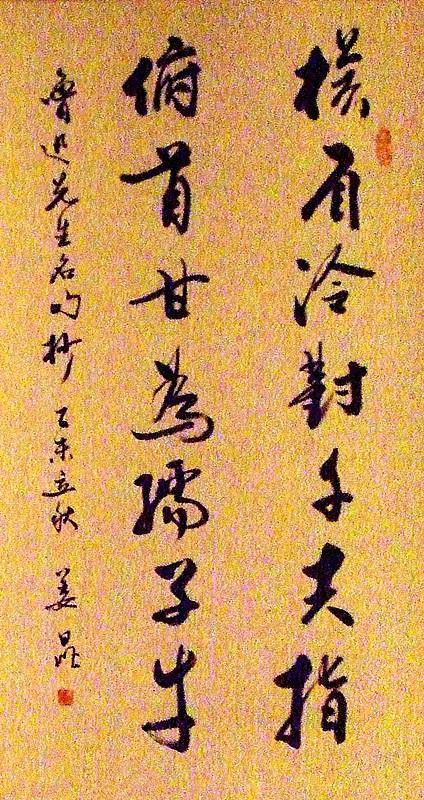 橫眉冷對千夫指
俯首甘為孺子牛
魯迅先生名句抄 乙未立秋 姜昆